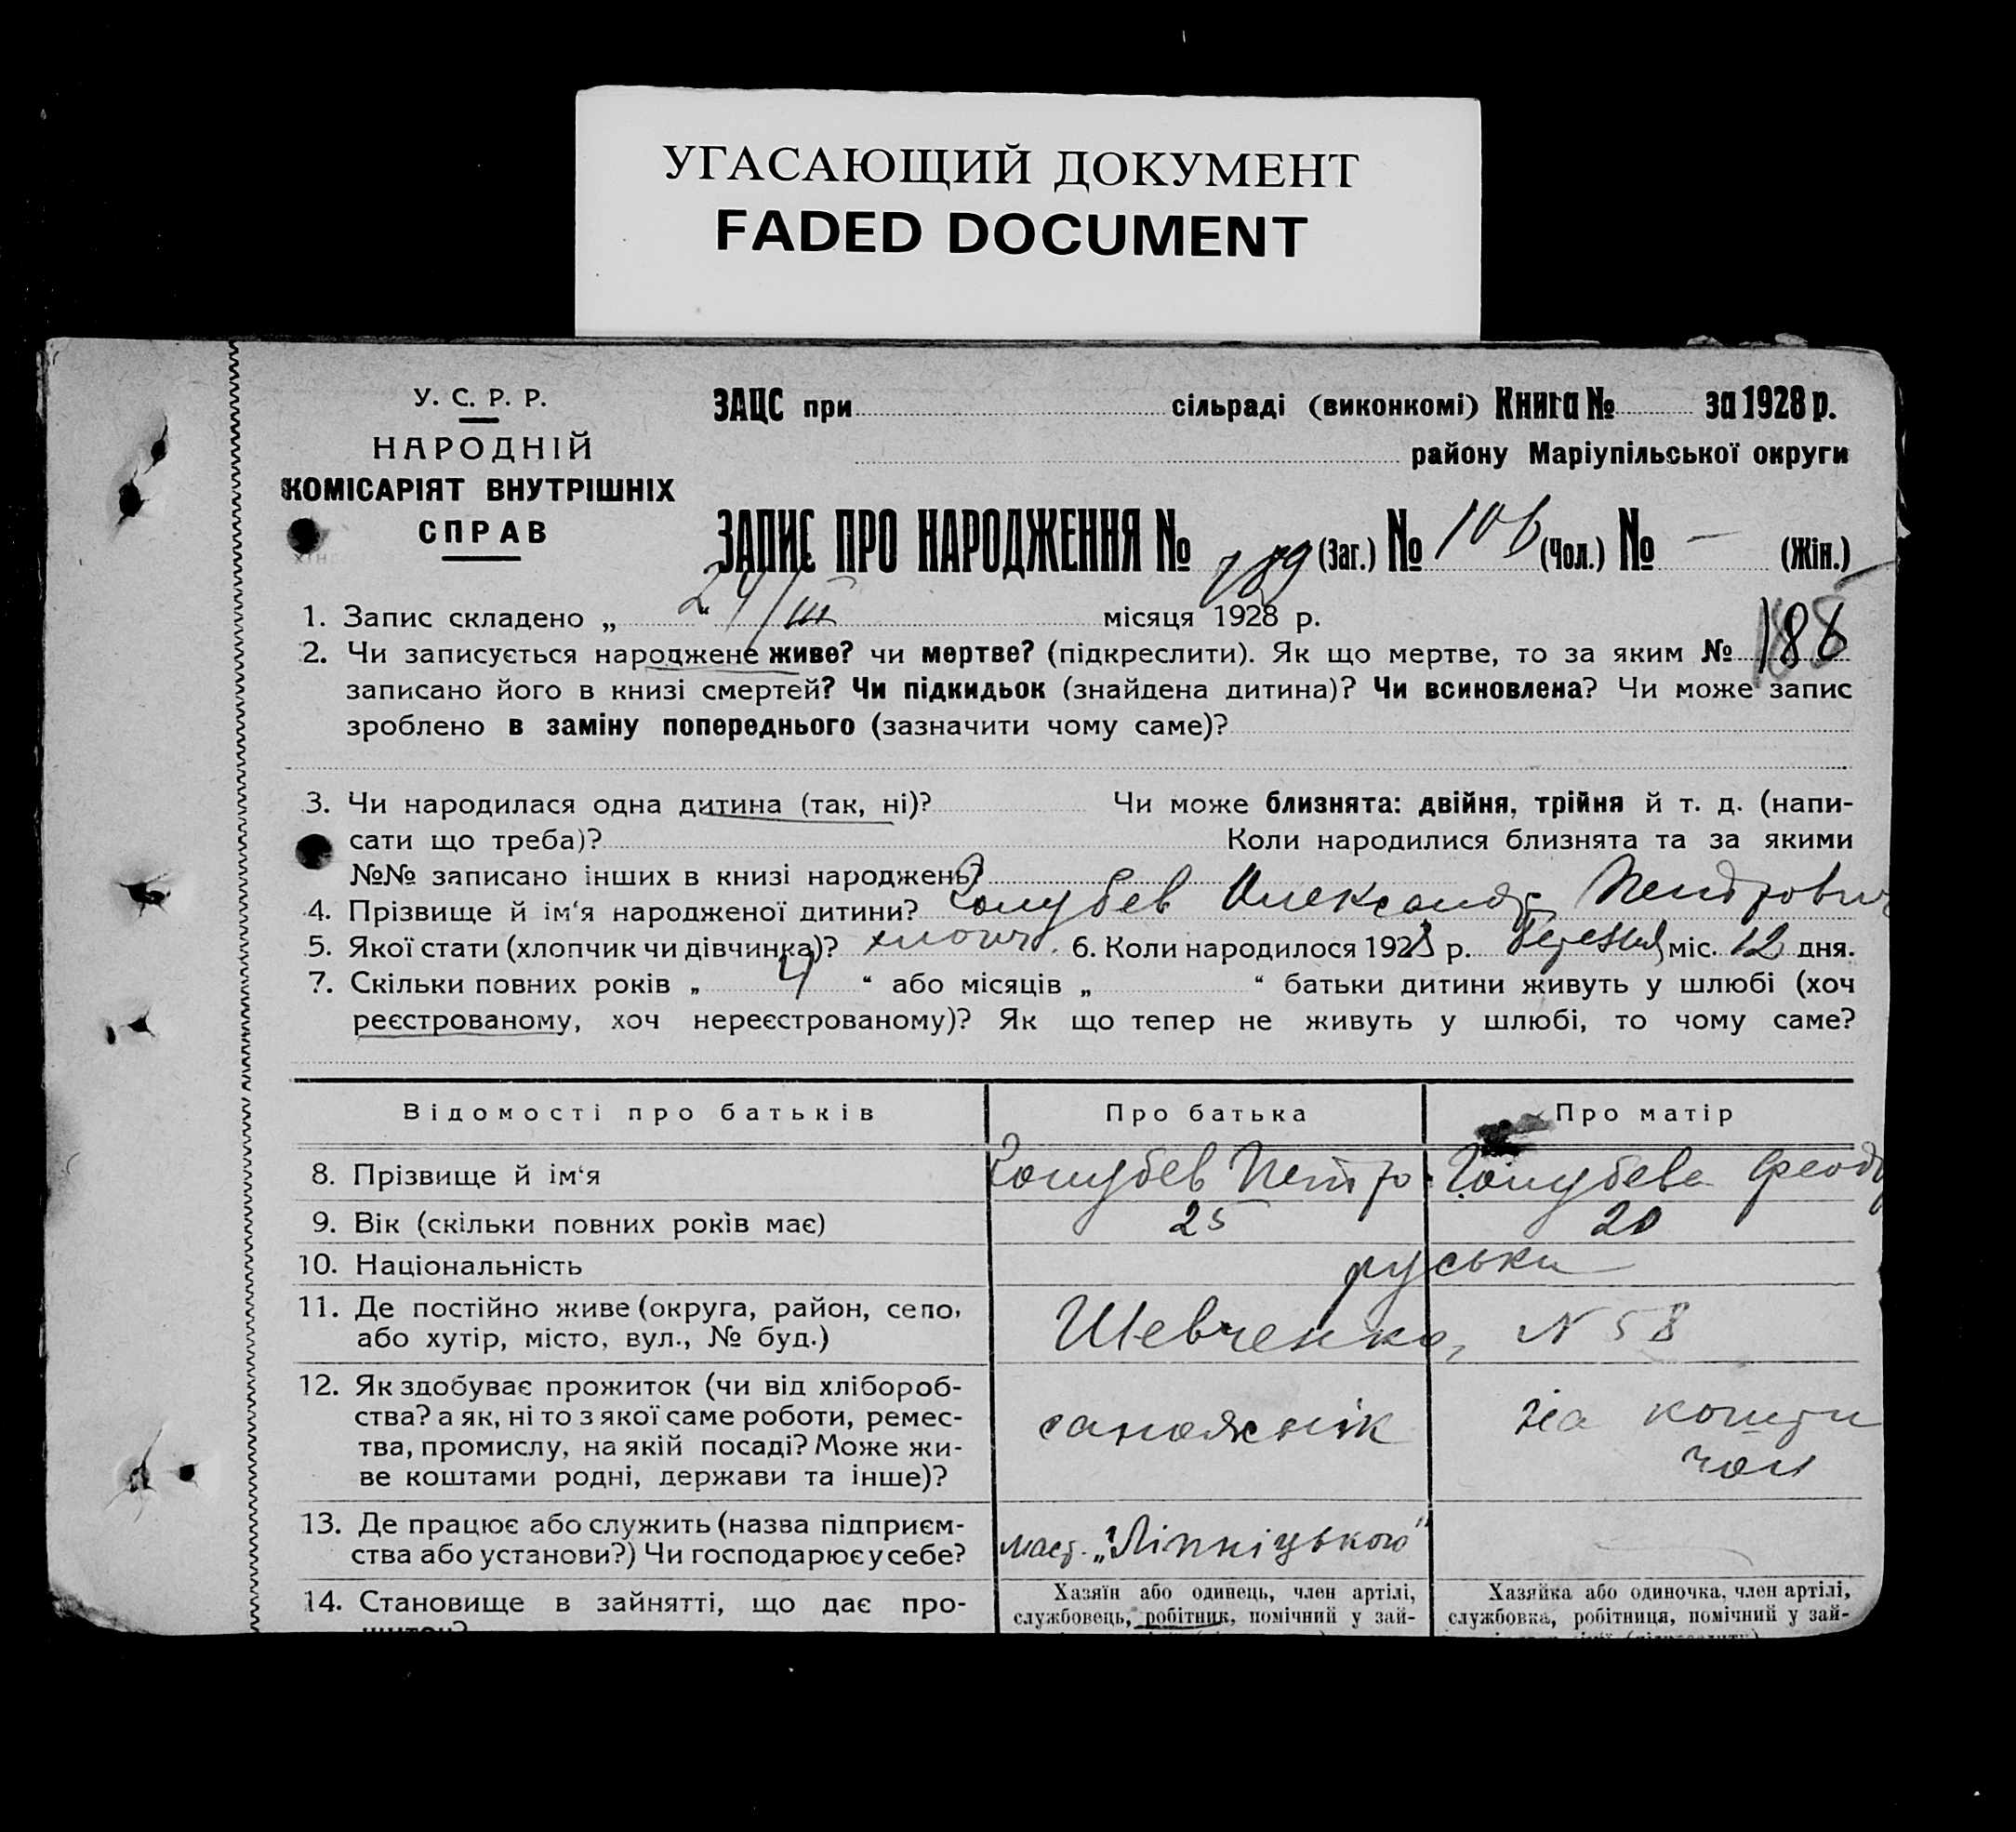 УГАСАЮЩИЙ ДОКУМЕНТ
FADED DOCUMENT
У. С. Р. Р.
НАРОДНІЙ
КОМІСАРІЯТ ВНУТРІШНІХ
СПРАВ
ЗАЦС при сільраді (виконкомі) Книга № за 1928 р.
району Маріупільської округи
ЗАПИС ПРО НАРОДЖЕННЯ № 189 (Заг.) № 106 (Чол.) № — (Жін.)
1. Запис складено „ 24/III “ місяця 1928 р.
2. Чи записується народжене живе? чи мертве? (підкреслити). Як що мертве, то за яким № 188
записано його в книзі смертей? Чи підкидьок (знайдена дитина)? Чи всиновлена? Чи може запис
зроблено в заміну попереднього (зазначити чому саме)?
3. Чи народилася одна дитина (так, ні)? Чи може близнята: двійня, трійня й т. д. (напи-
сати що треба)? Коли народилися близнята та за якими
№№ записано інших в книзі народжень?
4. Прізвище й ім‘я народженої дитини? Голубев Олександр Петрович
5. Якої стати (хлопчик чи дівчинка)? хлопч. 6. Коли народилося 1928 р. березня міс. 12 дня.
7. Скільки повних років „ 4 “ або місяців „ “ батьки дитини живуть у шлюбі (хоч
реєстрованому, хоч нереєстрованому)? Як що тепер не живуть у шлюбі, то чому саме?
Відомості про батьків Про батька Про матір
8. Прізвище й ім‘я Голубев Петро Голубева Феод
9. Вік (скільки повних років має) 25 20
10. Національність руськи
11. Де постійно живе (округа, район, село,
або хутір, місто, вул., № буд.) Шевченко, N 58
12. Як здобуває прожиток (чи від хлібороб-
ства? а як, ні то з якої саме роботи, ремес-
тва, промислу, на якій посаді? Може жи-
ве коштами родні, держави та інше)?
сапожнік
на кошти
чол
13. Де працює або служить (назва підприєм-
ства або установи?) Чи господарює у себе?
маст. „Ліпніцького“
14. Становище в зайнятті, що дає про-
Хазяїн або одинець, член артілі,
службовець, робітник, помічний у зай-
Хазяйка або одиночка, член артілі,
службовка, робітниця, помічний у зай-